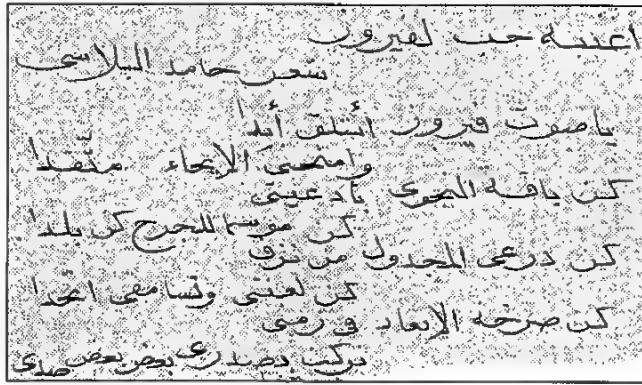 أغنية حب لفيروز
شعر حامد البلاسي
يا صوت فيروز أئتلق أبدا
وامنحني الإيحاء متّقدا
كن باقة النجوى بأدعيتي
كن موسما للجرح كن بلدا
كن درعي المجدول من نزف
كن لعبتي وتسامقي اتحدا
كن صرخة الإبعاد في زمني
بصدري بعض بعض صدى